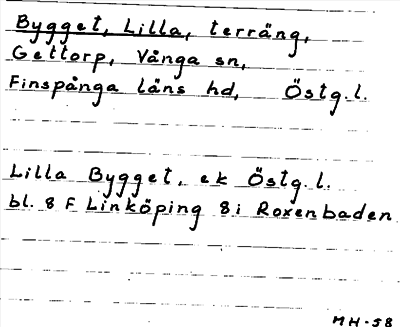 Bygget, Lilla, terräng,
Gettorp, Vånga sn,
Finspånga läns hd, Östg.l.
Lilla Bygget. ek Östg.l.
bl. 8 F Linköping 8i Roxenbaden
MH-58